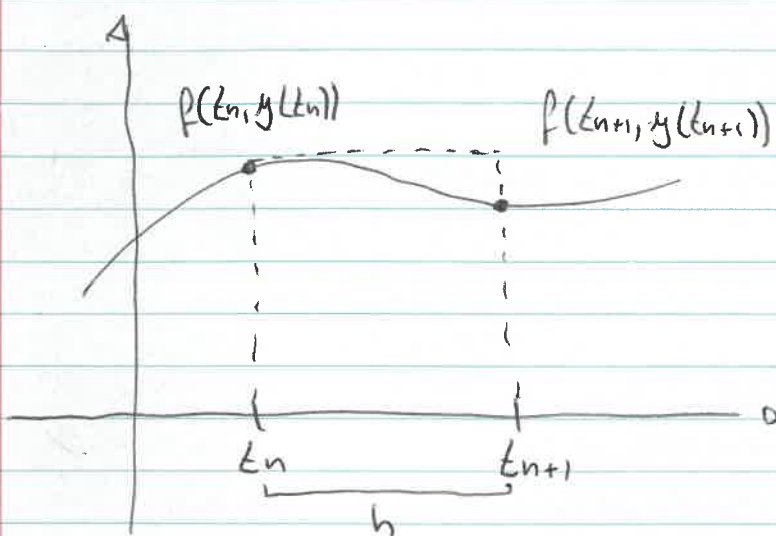 f(tn, y(tn))
f(tn+1, y(tn+1))
tn
tn+1
h